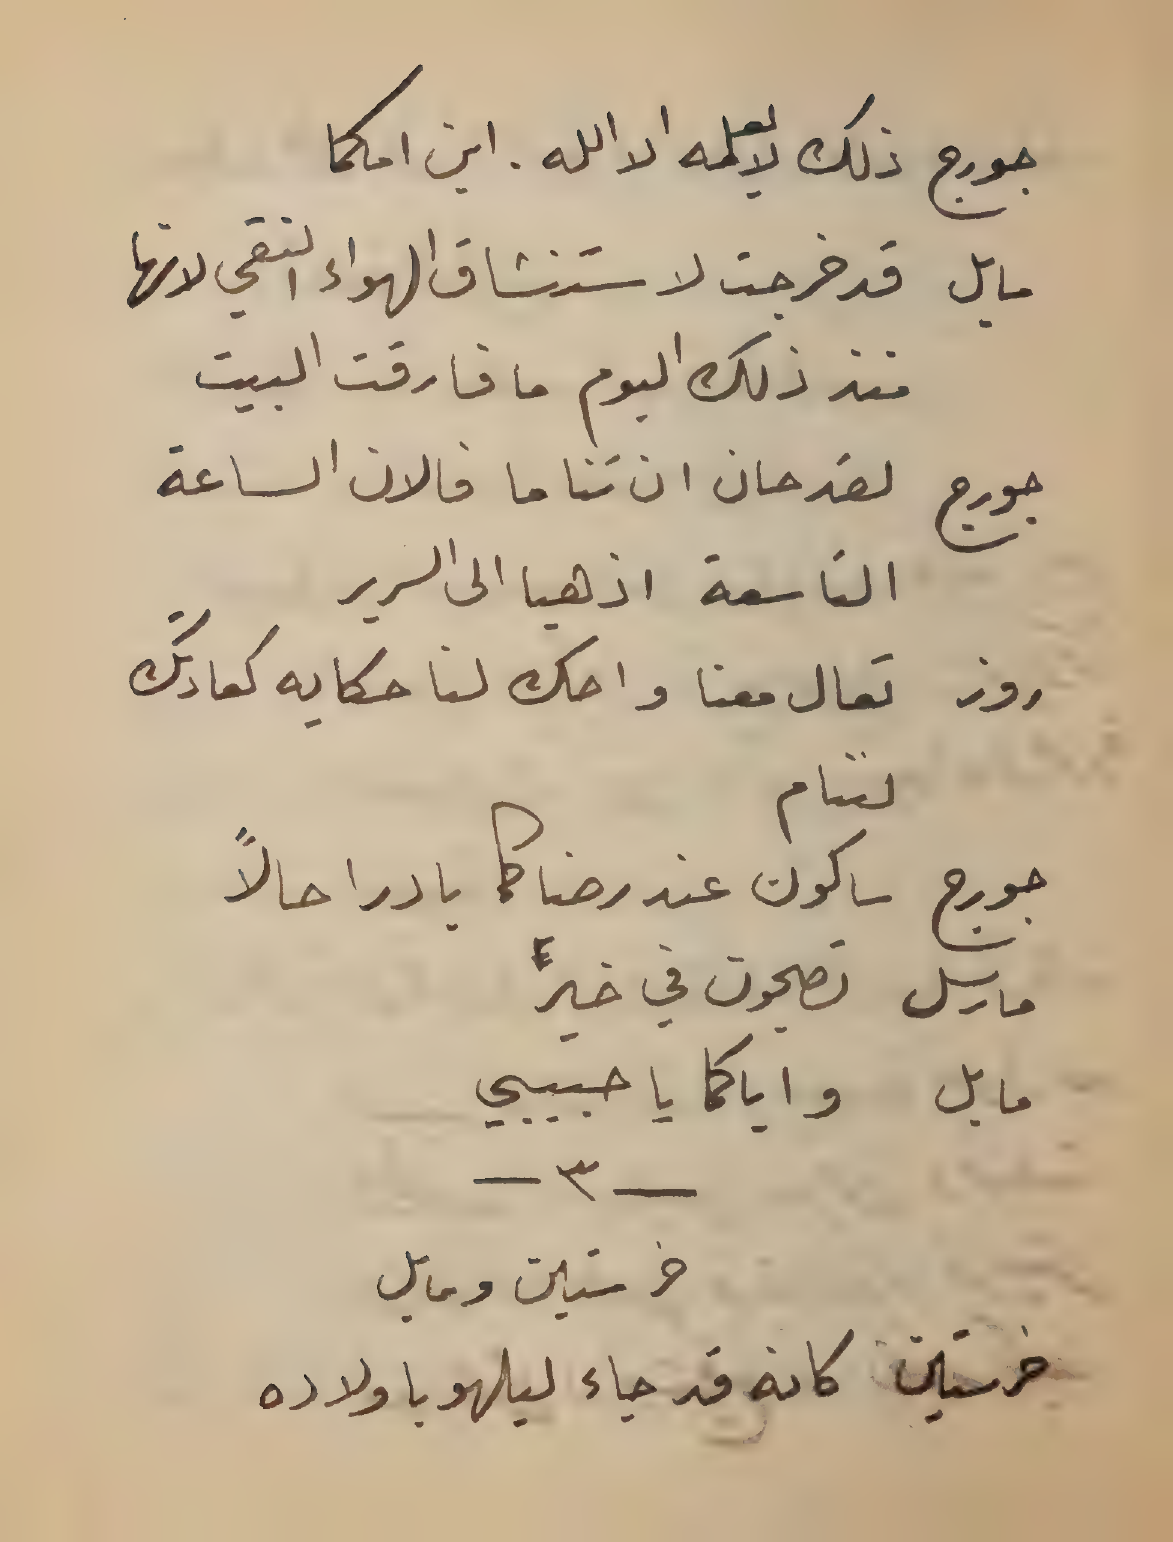 جورج ذلك لا يعلمه الا الله . اين امكما
مابل قد خرجت لاستنشاق الهواء النقي لانها
منذ ذلك اليوم ما فارقت البيت
جورج لقد حان ان تناما فالان الساعة
التاسعة اذهبا الى السرير
روز تعال معنا واحك لنا حكايه كعادتك
لننام
جورج ساكون عند رضاكما بادرا حالاً
مارسل تصبحون في خير
مابل واياكما يا حبيبي
— ٣ —
خرستين ومابل
خرستين كانه قد جاء ليلهو باولاده